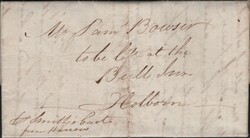 Mr Saml Bowser
to be left at the
Bull Inn
Holborn
pr Smith's Cart
from Harrow